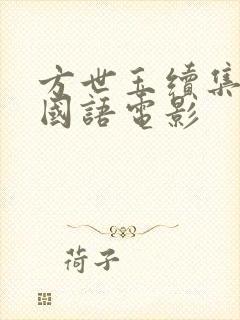 方世玉續集
國語電影
荷子